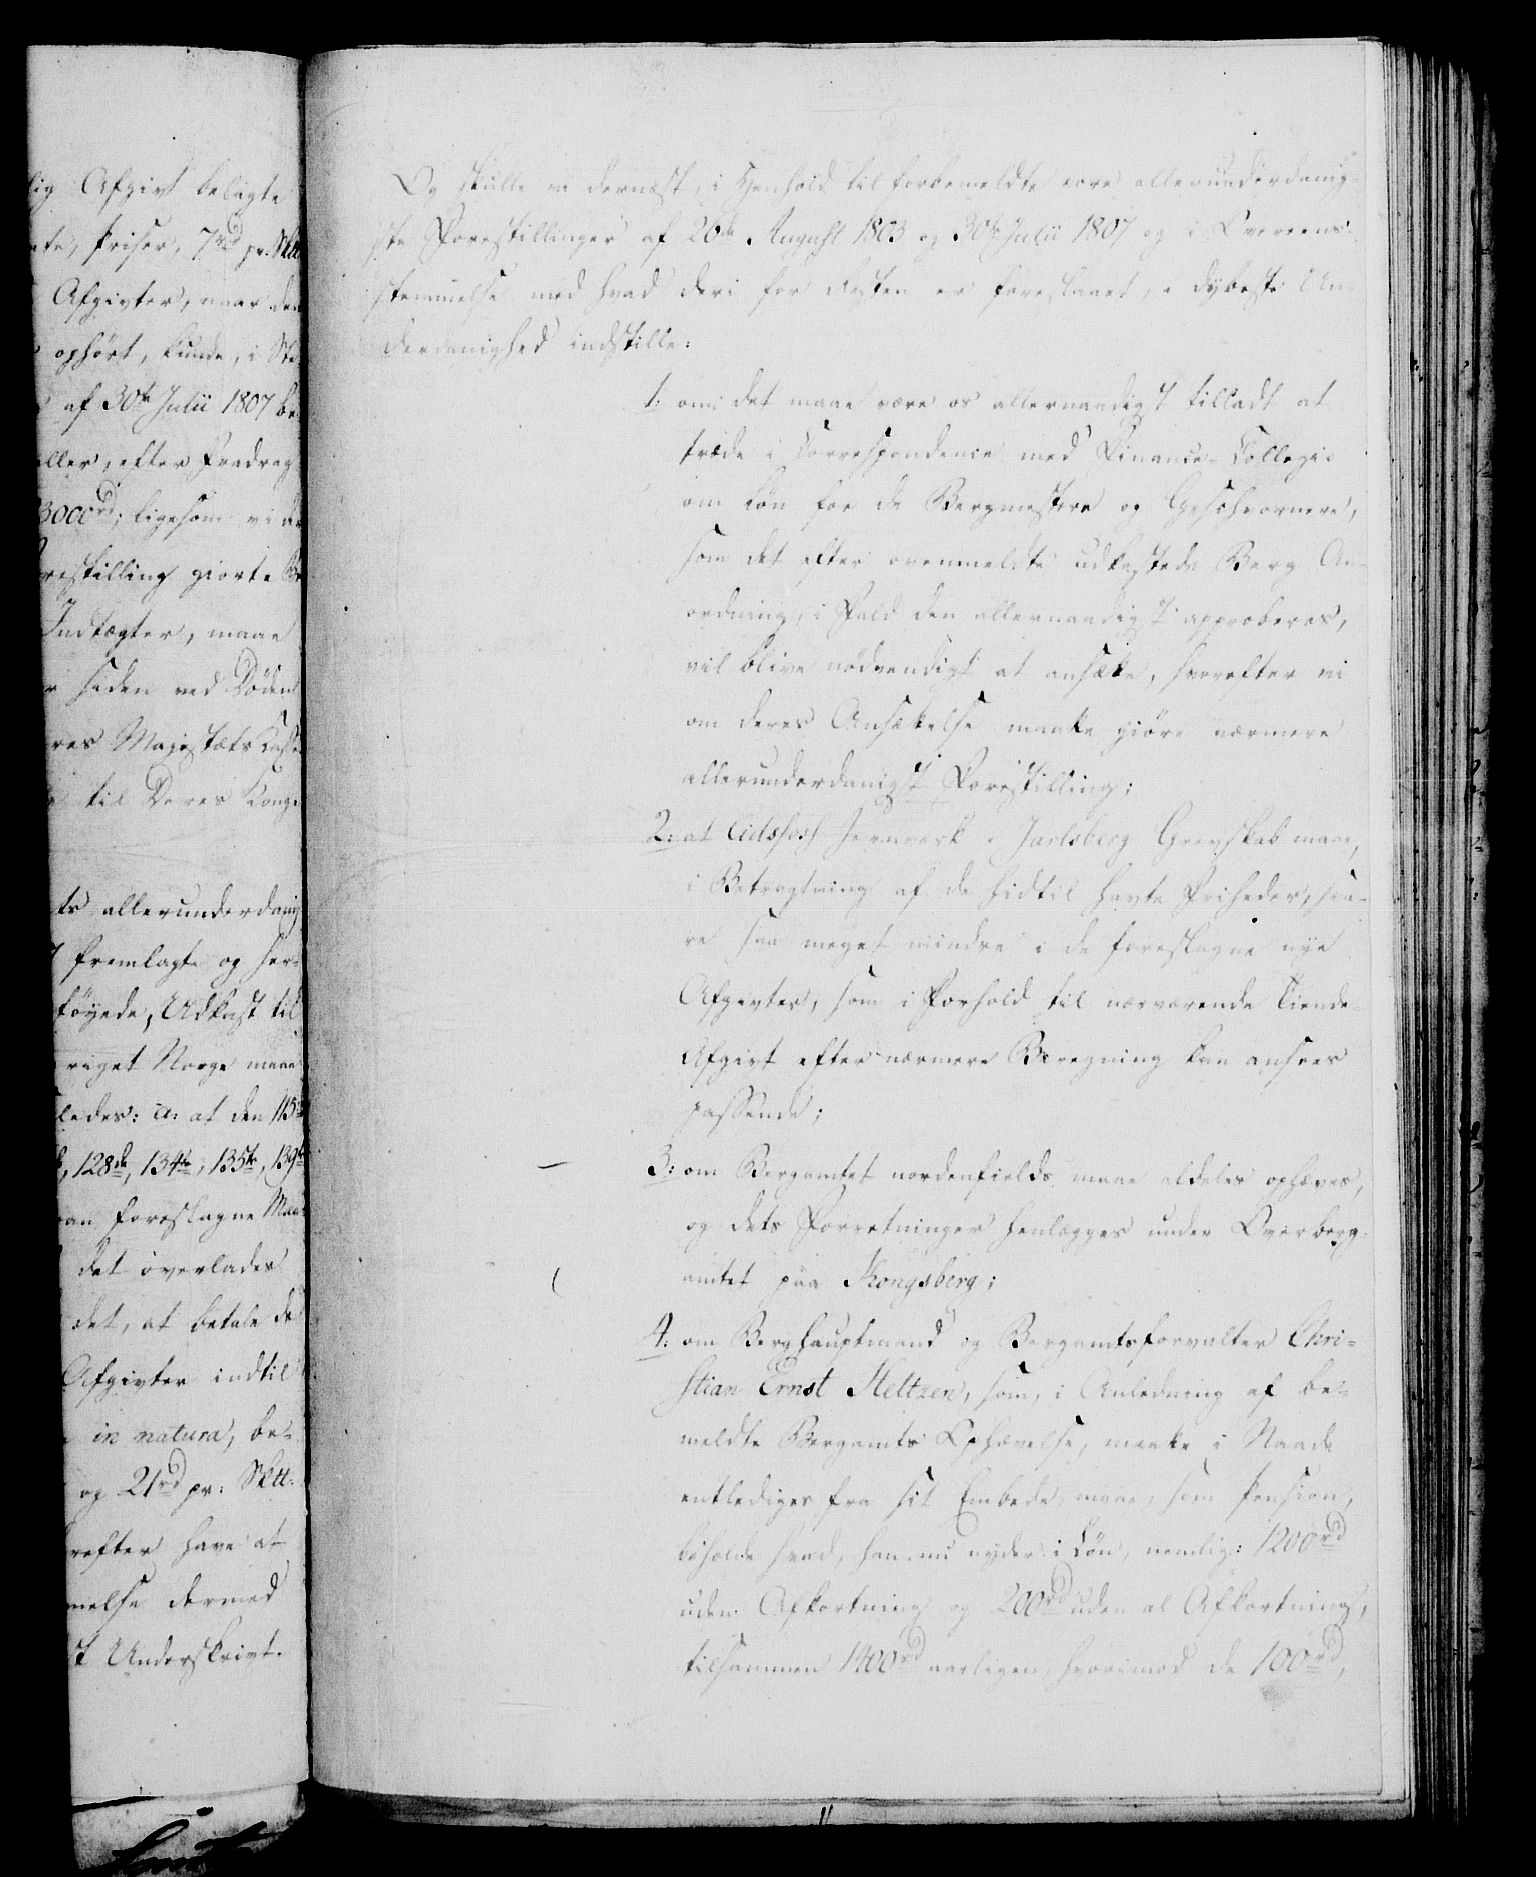 lig Afgivt belagte
Priser, 7rd pr. Sktt
Afgivter, naar den
ophørt, kunde, i Ste
af 30te Julii 1807 be
eller, efter Fradrag
3000rd; ligesom vi der
restilling giorte Be
Indtægter, maae
siden ved Döden
res Majestæts Casse
til Deres Konge
ts allerunderdanig
fremlagte og her
föyede, Udkast til
riget Norge maae
ledes: a: at den 115de
128de, 134te, 135te, 139te
foreslagne Maa
det overlades
det, at betale de
Afgivter indtil
in natura, be-
og 21rd pr: Sktt.
refter have at
melse dermed
st Underskrivt.
Og skulle vi dernæst, i Henhold til forbemeldte vore allerunderdanig-
ste Forestillinger af 26de August 1803 og 30te Julii 1807 og i Overeens-
stemmelse med hvad deri for Resten er foreslaaet, i dybeste Un-
derdanighed indstille:
1: om det maae være os allernaadigst tilladt at
træde i Correspondence med Finance-Collegie
om Løn for de Bergmestere og Geschvornere,
som det efter ovenmeldte udkastede Berg-An-
ordning, i Fald den allernaadigst approberes,
vil blive nödvendigt at ansætte, hvorefter vi
om deres Ansættelse maatte giöre nærmere
allerunderdanigst Forestilling;
2: at Eidsfoss Jernverk i Jarlsberg Grevskab maae,
i Betragtning af de hidtil havte Friheder, sva-
re saa meget mindre i de foreslagne nye
Afgivter, som i Forhold til nærværende Tiende-
Afgivt efter nærmere Beregning kan ansees
passende;
3: om Bergamtet nordenfields maae aldeles ophæves,
og dets Forretninger henlægges under Overberg-
amtet paa Kongsberg;
4: om Berghauptmand og Bergamtsforvalter Chri-
stian Ernst Heltzen, som, i Anledning af be-
meldte Bergamts Ophævelse, maatte i Naade
entlediges fra sit Embede, maae, som Pension,
beholde hvad, han nu nyder i Lön, nemlig: 1200rd
uden Afkortning og 200rd uden al Afkortning,
tilsammen 1400rd aarligen, hvorimod de 100rd,